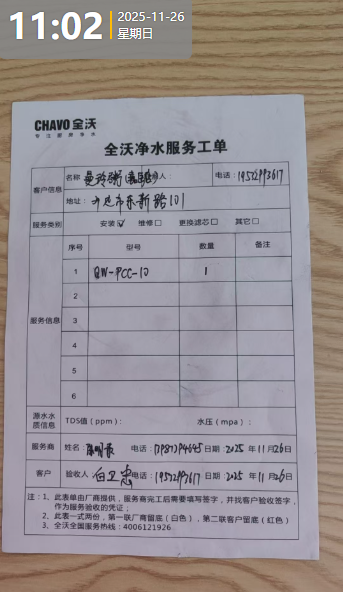 11:02
2025-11-26
星期日
CHAVO 全沃
专注厨房净水
全沃净水服务工单
客户信息
名称 联系人： 电话：19572993617
地址： 东新路101
服务类别 安装☑ 维修□ 更换滤芯□ 其它□
服务信息
序号 型号 数量 备注
1 QW-PCC-10 1
2
3
4
5
6
源水水质信息
TDS值（ppm）： 水压（mpa）：
服务商 姓名： 电话： 日期：2025年11月26日
客户 验收人 电话：19572993617 日期：2025年11月26日
注：1、此表单由厂商提供，服务商完工后需要填写签字，并找客户验收签字，
作为服务验收的凭证；
2、此表一式两份，第一联厂商留底（白色），第二联客户留底（红色）
3、全沃全国服务热线：4006121926